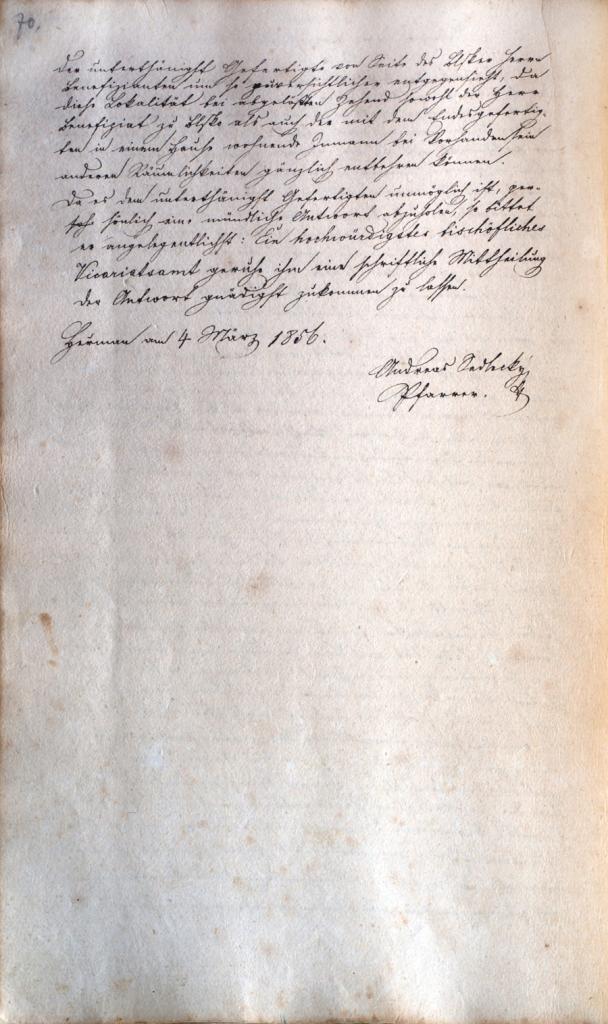 70.
der unterthänigst Gefertigte von Seite des Elsker Herrn
Benefizianten um so zuversichtlicher entgegensieht, da
diese Lokalität bei abgelösten Zehend sowohl der Herr
Benefiziat zu Elsko als auch die mit dem Endesgefertig-
ten in einem Hause wohnende Inmann bei Vorhandensein
anderen Räumlichkeiten gänzlich entbehren können.
Da es dem unterthänigst Gefertigten unmöglich ist, per-
sönlich eine mündliche Antwort abzuholen, so bittet
er angelegentlichst: Ein hochwürdigstes bischöfliches
Vicariatsamt geruhe ihm eine schriftliche Mittheilung
der Antwort gnädigst zukommen zu lassen.
Herman am 4 März 1856.
Andreas Sedlecky
Pfarrer.